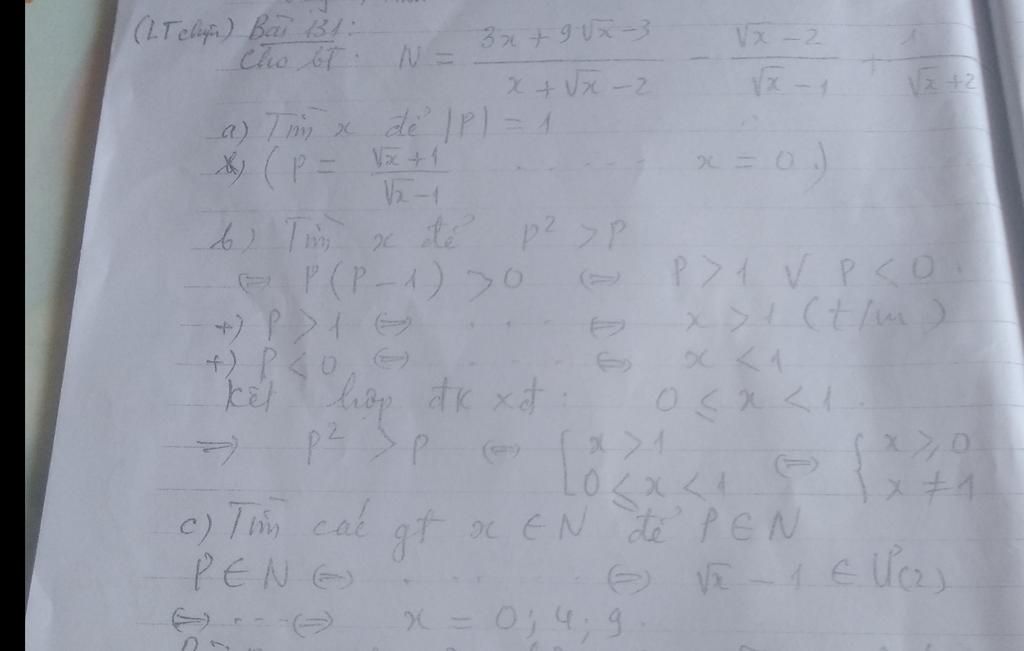 (LT chuyên) Bài 131:
Cho bt: N = (3x + 9√x − 3)/(x + √x − 2) − (√x − 2)/(√x − 1) + 1/(√x + 2)
a) Tìm x để |P| = 1
(P = (√x + 1)/(√x − 1) ....... x = 0.)
b) Tìm x để P² > P
⇔ P(P − 1) > 0 ⇔ P > 1 V P < 0.
+) P > 1 ⇔ .... ⇔ x > 1 (t/m)
+) P < 0 ⇔ .... ⇔ x < 1
Kết hợp đk xđ: 0 ≤ x < 1.
⇒ P² > P ⇔ [ x > 1 ; 0 ≤ x < 1 ⇔ { x ≥ 0 ; x ≠ 1
c) Tìm các gt x ∈ N để P ∈ N
P ∈ N ⇔ ....... ⇔ √x − 1 ∈ Ư(2)
⇔ ... ⇔ x = 0; 4; 9.